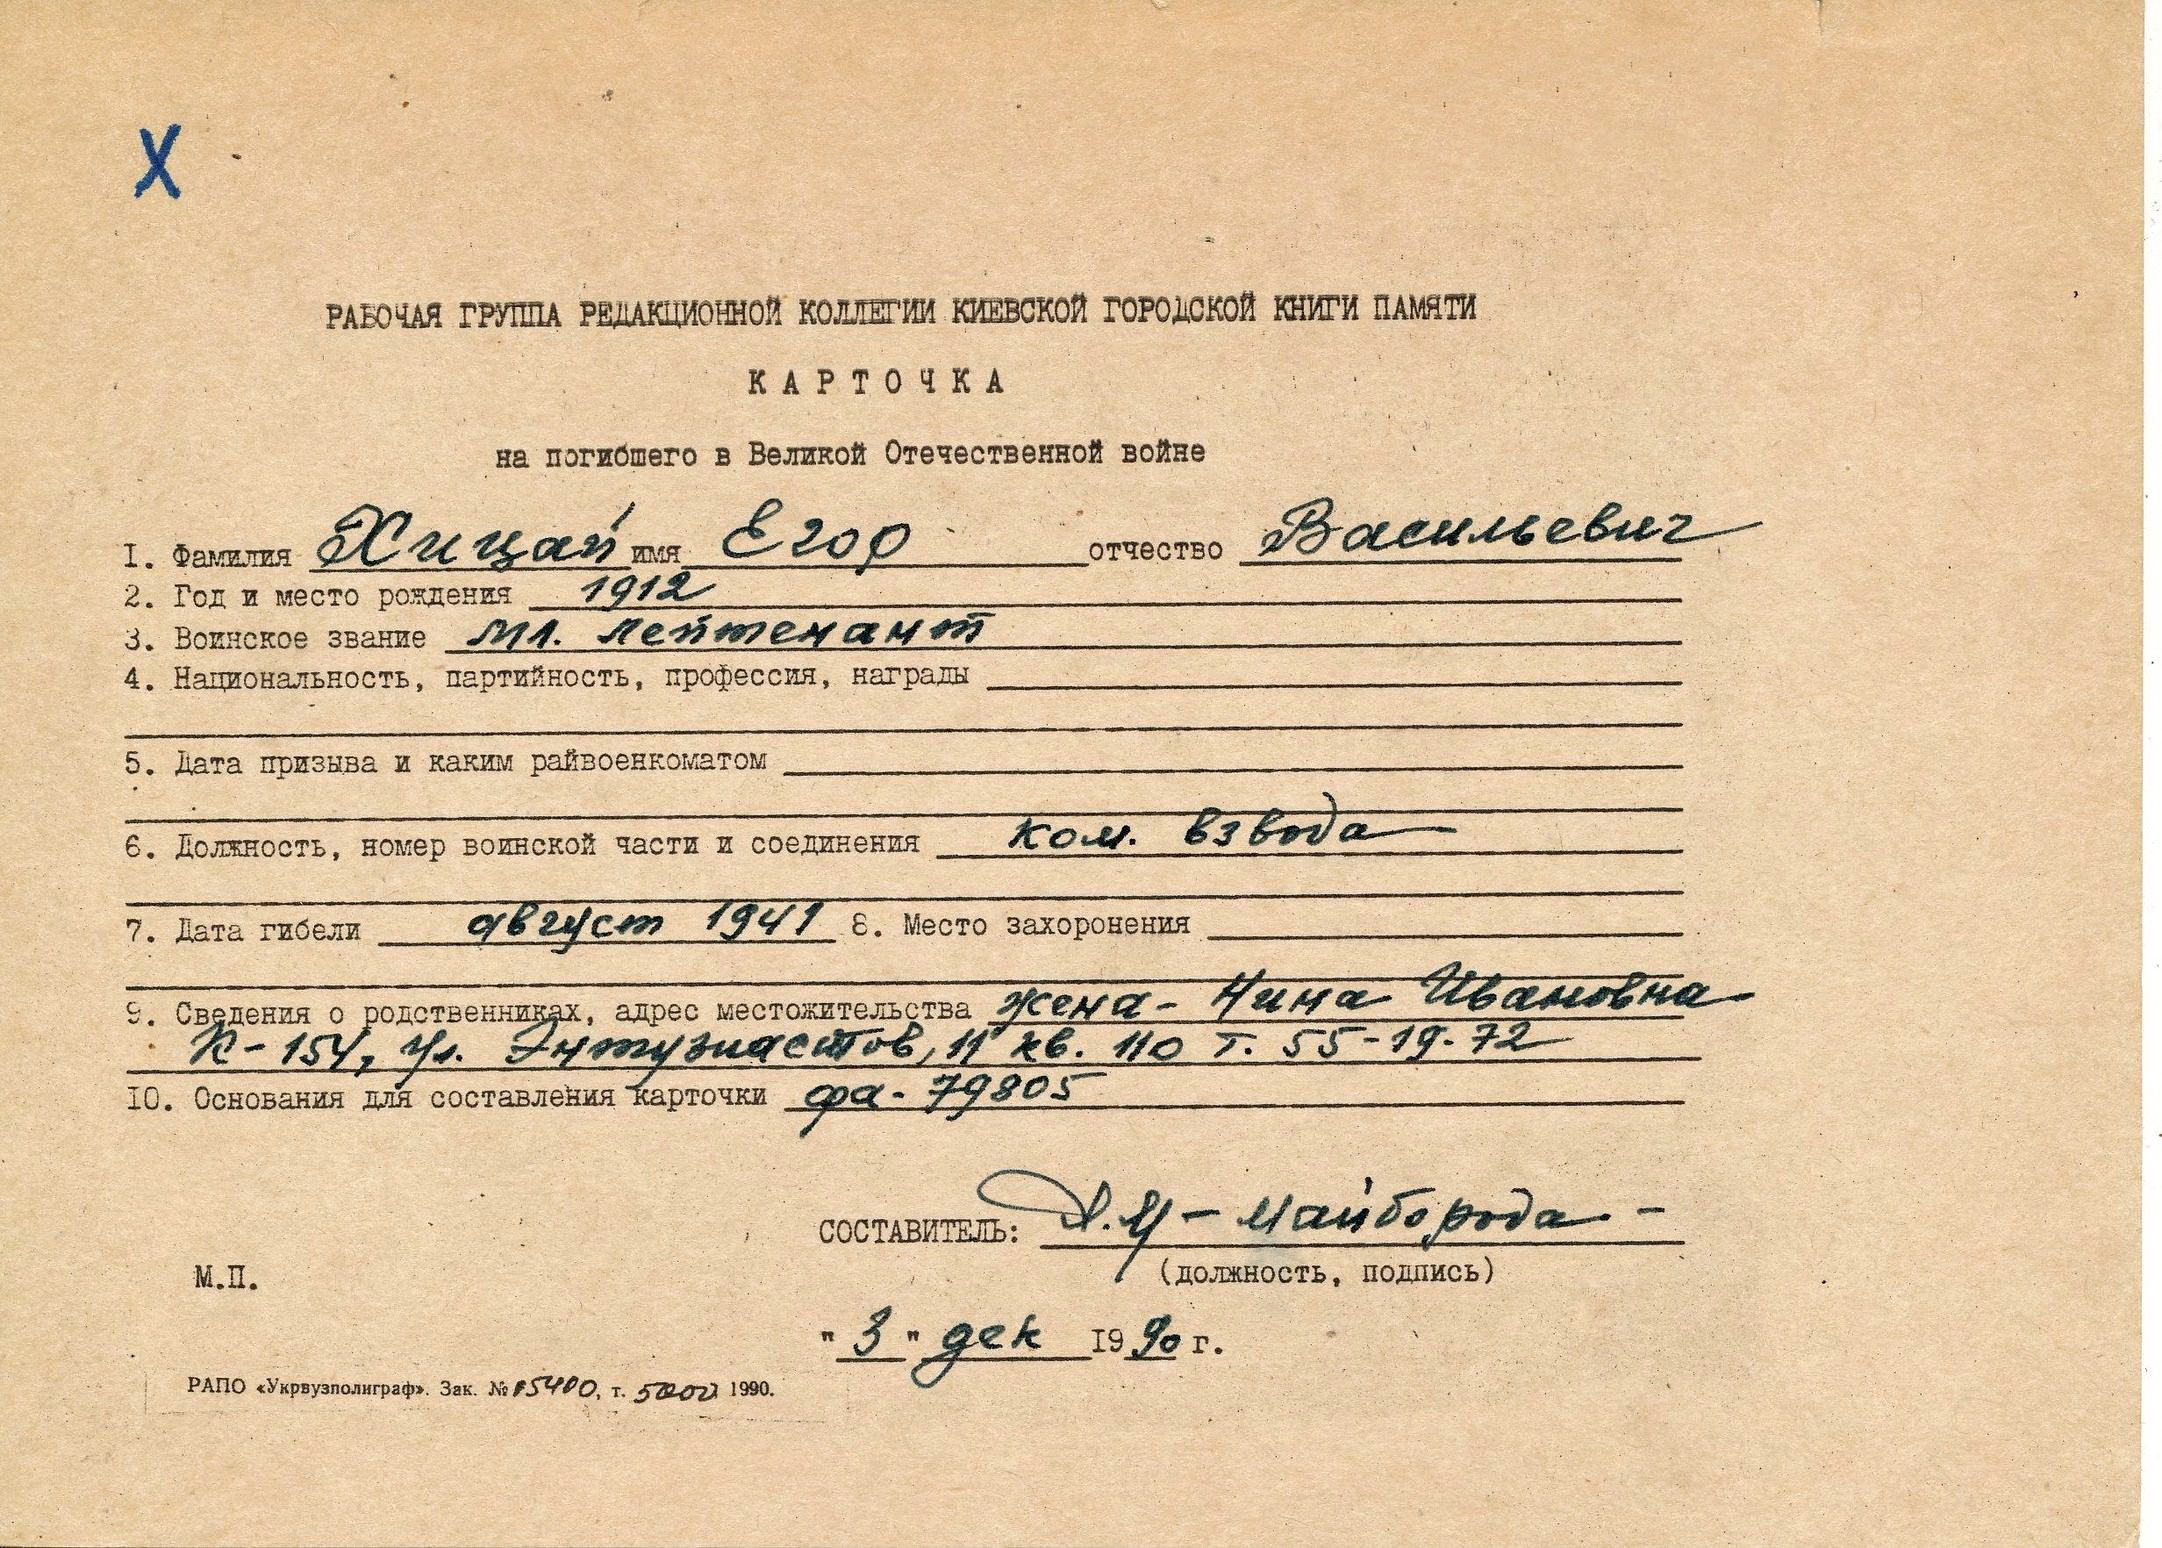 Х
РАБОЧАЯ ГРУППА РЕДАКЦИОННОЙ КОЛЛЕГИИ КИЕВСКОЙ ГОРОДСКОЙ КНИГИ ПАМЯТИ
КАРТОЧКА
на погибшего в Великой Отечественной войне
I. Фамилия Хицай имя Егор отчество Васильевич
2. Год и место рождения 1912
3. Воинское звание мл. лейтенант
4. Национальность, партийность, профессия, награды
5. Дата призыва и каким райвоенкоматом
6. Должность, номер воинской части и соединения ком. взвода
7. Дата гибели август 1941 8. Место захоронения
9. Сведения о родственниках, адрес местожительства жена - Нина Ивановна
К-154, ул. Энтузиастов, 11 кв. 110 т. 55-19-72
IO. Основания для составления карточки фа - 79805
СОСТАВИТЕЛЬ: - Майборода -
(должность, подпись)
М.П.
"3" дек I990 г.
РАПО «Укрвузполиграф». Зак. № 5400, т. 5000 1990.